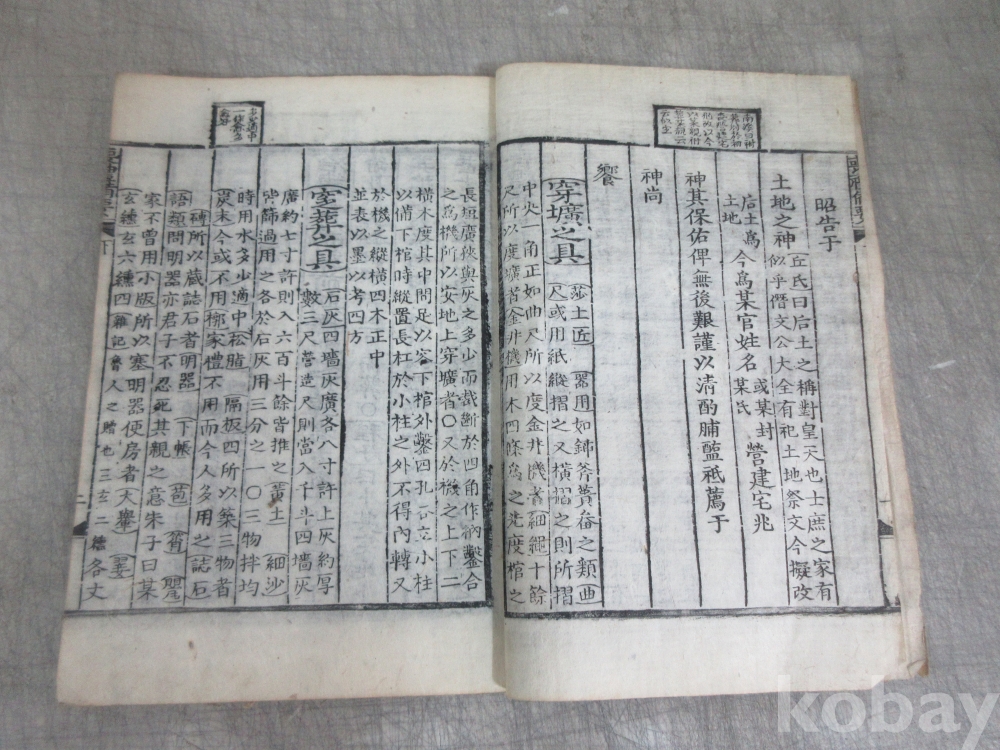 昭告于
土地之神丘氏曰后土之稱對皇天也士庶之家有
似乎僭文公大全有祀土地祭文今擬改
后土爲
土地
今爲某官姓名或某封
某氏
營建宅兆
神其保佑俾無後艱謹以清酌脯醢祗薦于
神尚
饗
穿壙之具莎土匠器用如錦斧菁畚之類曲
尺或用紙縱摺之又橫摺之則所摺
中央一角正如曲尺所以度金井機者細繩十餘
尺所以度壙者金井機用木四條爲之先度棺之
長短廣俠與灰之多少而裁斷於四角作訥鑿合
之爲機所以安地上穿壙者○又於機之上下二
橫木度其中間足以容下棺外鑿四孔各立小柱
以備下棺時縱置長杠於小柱之外不得內轉又
於機之縱橫四木正中
並表以墨以考四方
窆葬之具石灰四墻灰廣各八寸許上灰約厚
數三尺營造尺則當入千斗四墻灰
廣約七寸許則入六百斗餘皆推之黃土細沙
皆篩過用之各於石灰用三分之一○三物拌均
時用水多少適中松脂隔板四所以築三物者
炭末今或不用槨家禮不用而今人多用之誌石
磚所以藏誌石者明器下帳苞筲甖
語類問明器亦君子不忍死其親之意朱子曰某
家不曾用小版所以塞明器便房者大轝翣
玄纁玄六纁四雜記魯人之贈也三玄二纁各丈
kobay